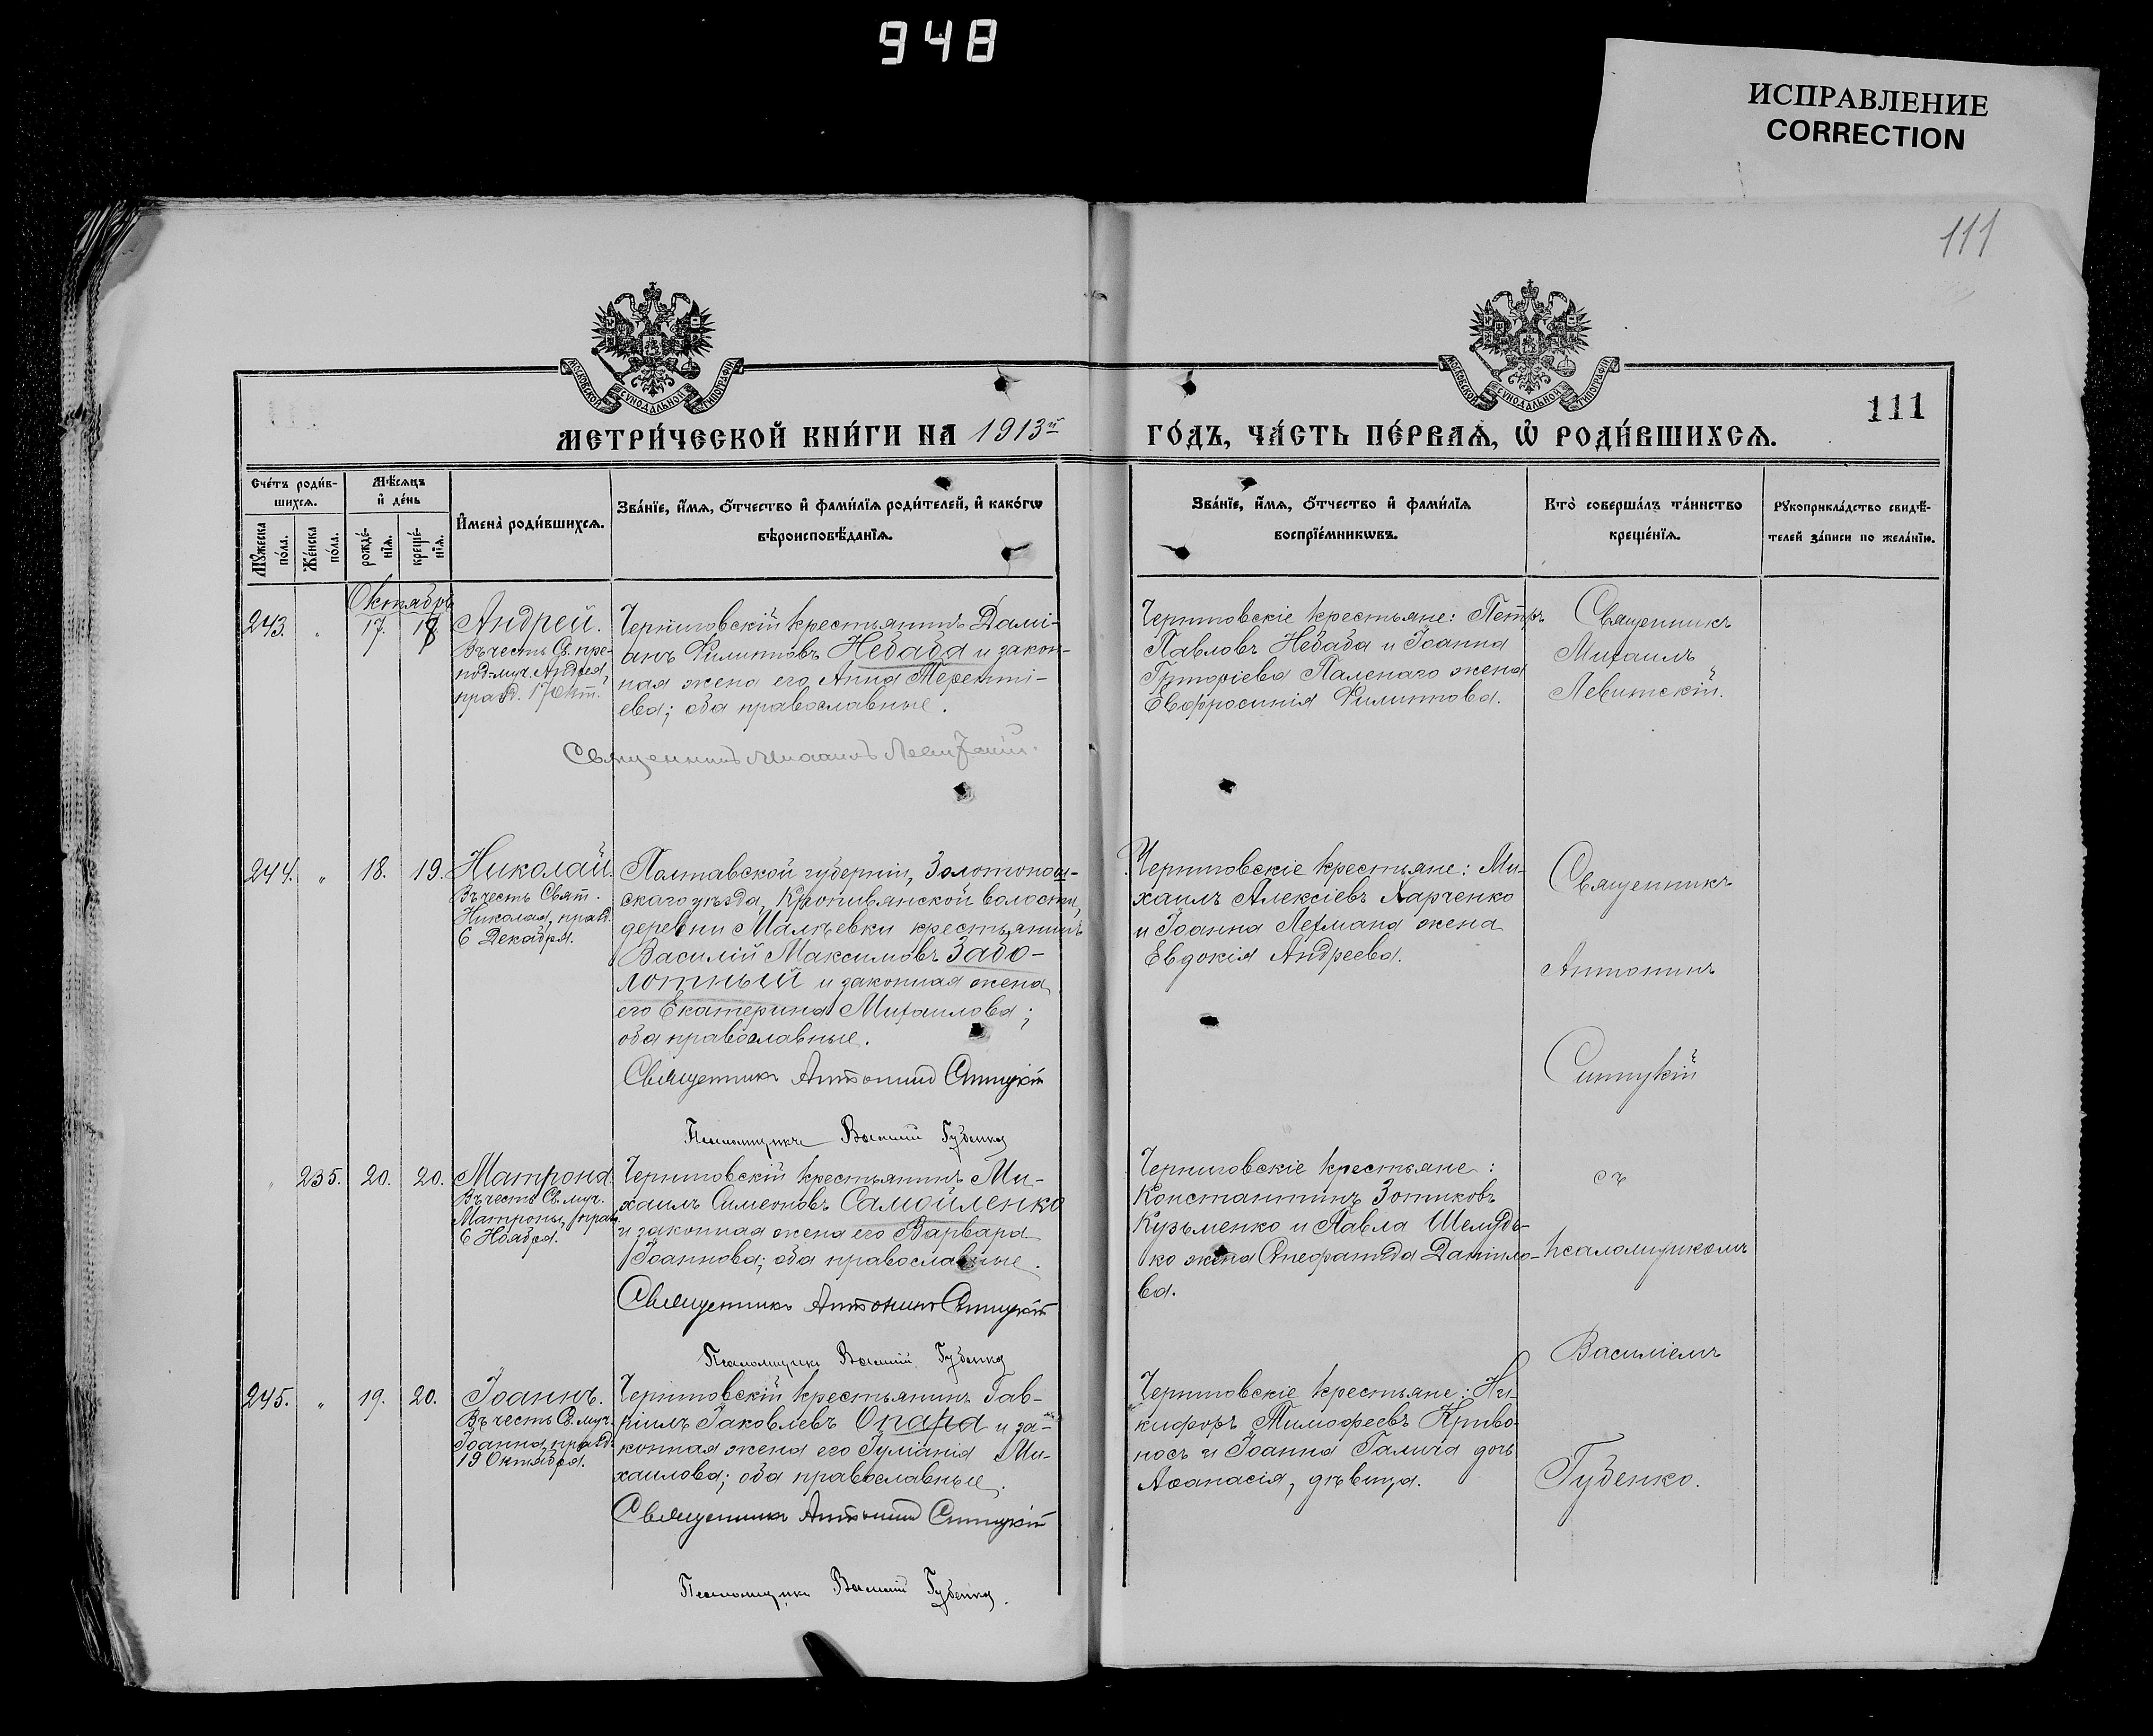 948
ИСПРАВЛЕНИЕ
CORRECTION
111
МОСКОВСКОЙ СѴНОДАЛЬНОЙ ТИПОГРАФІИ
МОСКОВСКОЙ СѴНОДАЛЬНОЙ ТИПОГРАФІИ
111
МЕТРИ́ЧЕСКОЙ КНИ́ГИ НА 1913й
ГО́ДЪ, ЧА́СТЬ ПЕ́РВАЯ, Ѡ РОДИ́ВШИХСЯ.
Сче́тъ роди́в-
шихся.
Мꙋ́жеска по́ла.
Же́нска по́ла.
Мѣ́сяцъ
и де́нь
рожде́-
нїя.
креще́-
нїя.
Имена̀ роди́вшихся.
Зва́нїе, и́мя, о́тчество и фами́лїя роди́телей, и како́гѡ
вѣроисповѣ́данїя.
Зва́нїе, и́мя, о́тчество и фами́лїя
воспрїе́мникѡвъ.
Кто̀ соверша́лъ та́инство
креще́нїя.
Рꙋкоприкла́дство свидѣ́-
телей за́писи по жела́нїю.
Октябрь
243. " 17. 18.
Андрей.
Въ честь Св. пре-
под.-муч. Андрея,
празд. 17 Окт.
Черниговскій крестьянинъ Дамі-
анъ Филипповъ Небаба и закон-
ная жена его Анна Терентті-
ева; оба православные.
Священникъ Михаилъ Левитскій.
Черниговскіе крестьяне: Петръ
Павловъ Небаба и Іоанна
Григоріева Паленаго жена
Евфросинія Филиппова.
Священникъ
Михаилъ
Левитскій.
244. " 18. 19.
Николай.
Въ честь Свят.
Николая, празд.
6 Декабря.
Полтавской губерніи, Золотонош-
скаго уѣзда, Кропивянской волости,
деревни Малѣевки крестьянинъ
Василій Максимовъ Забо-
лотный и законная жена
его Екатерина Михаилова;
оба православные.
Священникъ Антонинъ Синицкій
Псаломщикъ Василій Губенко
Черниговскіе крестьяне: Ми-
хаилъ Алексіевъ Харченко
и Іоанна Лехмана жена
Евдокія Андреева.
Священникъ
Антонинъ
Синицкій
" 235. 20. 20.
Матрона.
Въ честь Св. муч.
Матроны, празд.
6 Ноября.
Черниговскій крестьянинъ Ми-
хаилъ Симеоновъ Самойленко
и законная жена его Варвара
Іоаннова; оба православные.
Священникъ Антонинъ Синицкій
Псаломщикъ Василій Губенко
Черниговскіе крестьяне:
Константинъ Зотиковъ
Кузьменко и Павла Шелудь-
ко жена Данило-
ва.
съ
псаломщикомъ
Василіемъ
245. " 19. 20.
Іоаннъ.
Въ честь Св. муч.
Іоанна, празд.
19 Октября.
Черниговскій крестьянинъ Гав-
ріилъ Іаковлевъ Опара и за-
конная жена его Іуліанія Ми-
хаилова; оба православные.
Священникъ Антонинъ Синицкій
Псаломщикъ Василій Губенко.
Черниговскіе крестьяне: Ни-
кифоръ Тимофеевъ Криво-
носъ и Іоанна Галича дочь
Аѳанасія, дѣвица.
Губенко.